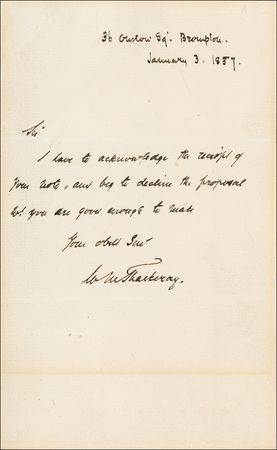 36 Onslow Sqr. Brompton.
January 3. 1857.
Sir
I have to acknowledge the receipt of
your note, and beg to decline the proposal
wh. you are good enough to make
Your obdt Servt
W M Thackeray.